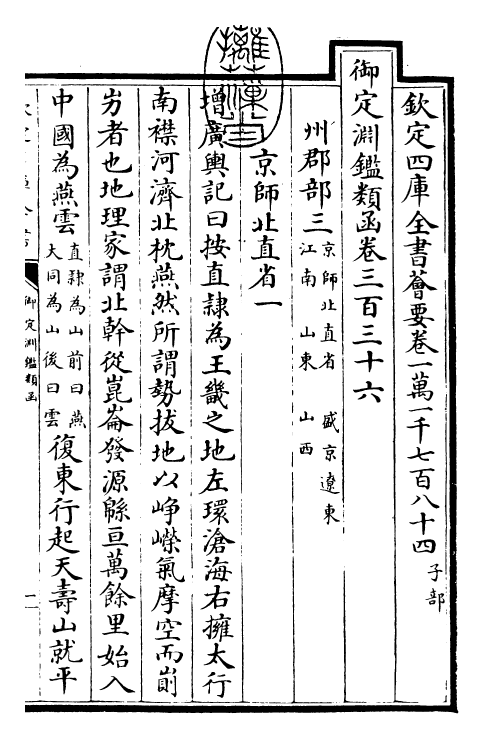 欽定四庫全書薈要卷一萬一千七百八十四 子部
御定淵鑑類函卷三百三十六
州郡部三 京師北直省 盛京遼東
江南 山東 山西
京師北直省一
增廣輿記曰按直隸為王畿之地左環滄海右擁太行
南襟河濟北枕燕然所謂勢拔地以崢嶸氣摩空而崱
屴者也地理家謂北幹從崑崙發源緜亘萬餘里始入
中國為燕雲 直隸為山前曰燕
大同為山後曰雲 復東行起天壽山就平
御定淵鑑類函
一